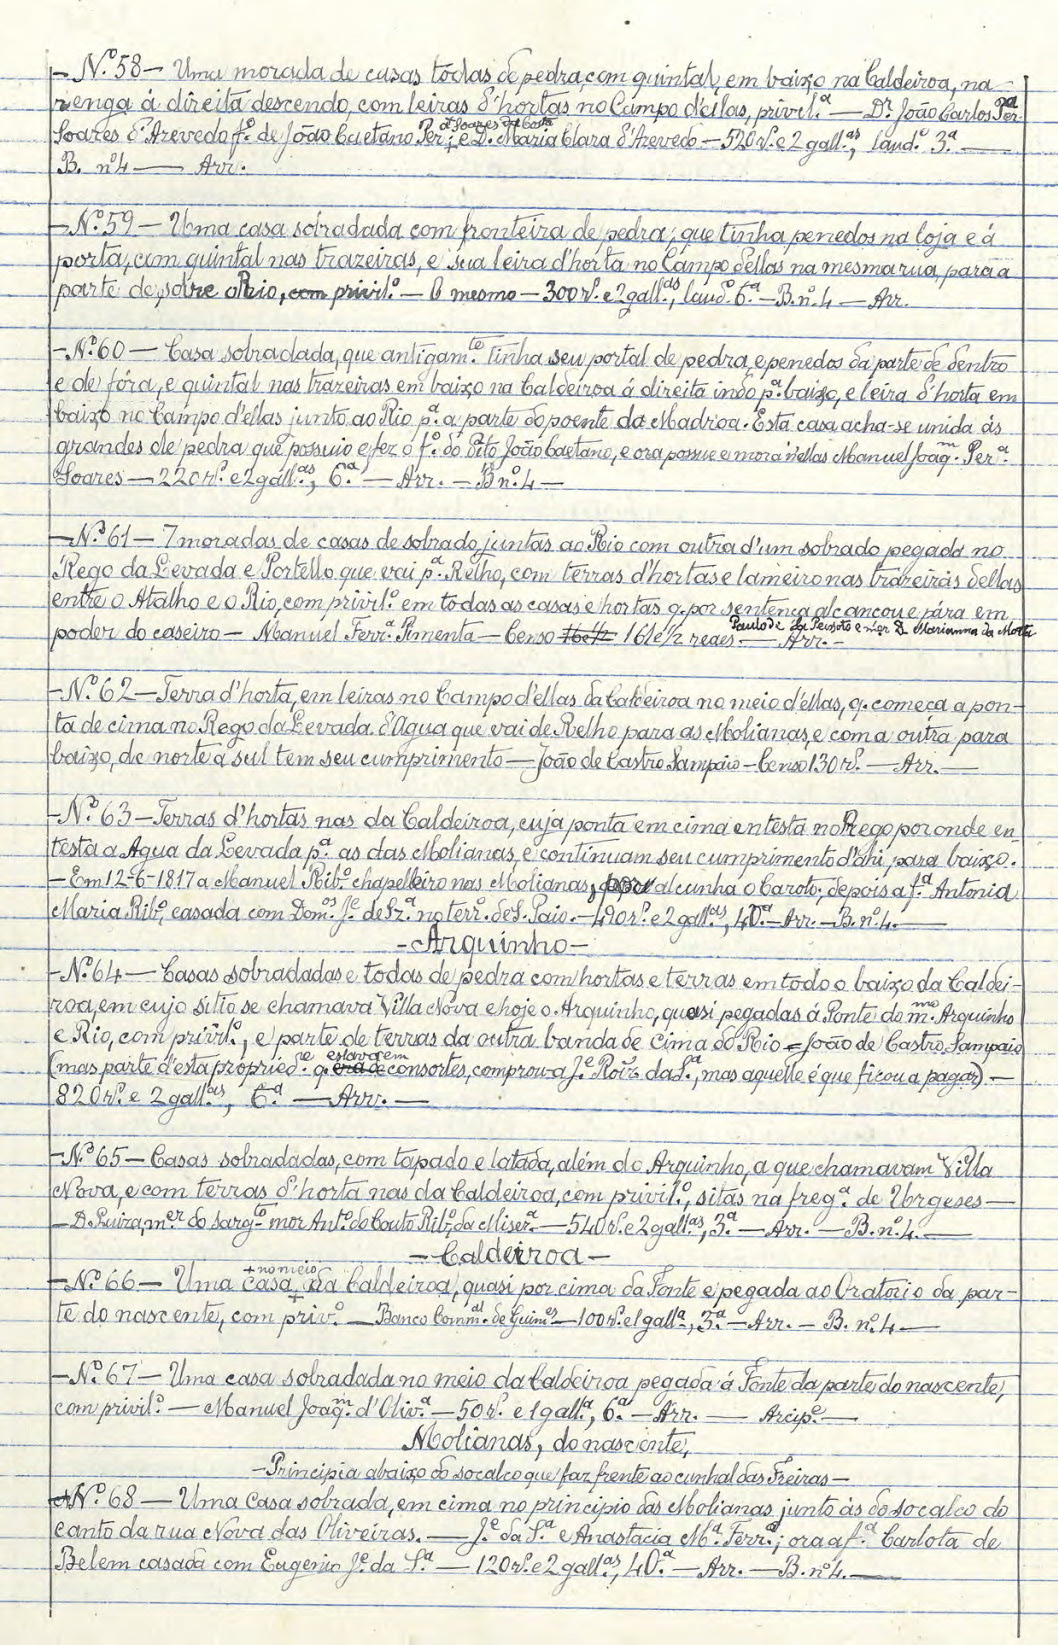 — N.º 58 — Uma morada de casas todas de pedra, com quintal, em baixo na Caldeiroa, na
renga á direita descendo, com leiras d'hortas no Campo d'ellas, privil.º — Dr. João Carlos Per.ª
Soares d'Azevedo f.º de João Caetano Per.ª Soares da Costa, e D. Maria Clara d'Azevedo — 520 r.s e 2 gall.as, laud.º 3.ª —
B. nº 4 — Arr.
— N.º 59 — Uma casa sobradada com fronteira de pedra, que tinha penedos na loja e á
porta, com quintal nas trazeiras, e sua leira d'horta no Campo dellas na mesma rua, para a
parte de sobre o Rio, com privil.º — O mesmo — 300 r.s e 2 gall.as, laud.º 6.ª — B. nº 4 — Arr.
— N.º 60 — Casa sobradada, que antigam.te tinha seu portal de pedra, e penedos da parte de dentro
e de fóra, e quintal nas trazeiras em baixo na Caldeiroa á direita indo p.ª baixo, e leira d'horta em
baixo no Campo d'ellas junto ao Rio p.ª a parte do poente da Madroa. Esta casa acha-se unida ás
grandes de pedra que possuio e fez o f.º do dito João Caetano, e ora possue e mora n'ellas Manuel Joaq.m Per.ª
Soares — 220 r.s e 2 gall.as, 6.ª — Arr. — B nº 4 —
— N.º 61 — 7 moradas de casas de sobrado, juntas ao Rio com outra d'um sobrado pegada no
Rego da Levada e Portello que vai p.ª Relho, com terras d'hortas e lameiro nas trazeiras dellas
entre o Atalho e o Rio, com privil.º em todas as casas e hortas q. por sentença alcançou e pára em
poder do caseiro — Manuel Ferr.ª Pimenta — Censo 161 e ½ reaes — Paulo de Peixoto e m.er D. Marianna da Motta — Arr. —
— N.º 62 — Terra d'horta, em leiras no Campo d'ellas da Caldeiroa no meio d'ellas, q. começa a pon-
ta de cima no Rego da Levada d'Agua que vai de Relho para as Molianas, e com a outra para
baixo, de norte a sul tem seu cumprimento — João de Castro Sampaio — Censo 130 r.s — Arr. —
— N.º 63 — Terras d'hortas nas da Caldeiroa, cuja ponta em cima entesta no Rego por onde en-
testa a Agua da Levada p.ª as das Molianas, e continuam seu cumprimento d'ahi para baixo.
— Em 12-6-1817 a Manuel Rib.º chapelleiro nas Molianas, por alcunha o Caroto; depois a f.ª Antonia
Maria Rib.º, casada com Dom.os J.e de Sz.ª no terr.º de S. Paio. — 490 r.s e 2 gall.as, 40.ª — Arr. — B. nº 4. —
— Arquinho —
— N.º 64 — Casas sobradadas e todas de pedra com hortas e terras em todo o baixo da Caldei-
roa, em cujo sitio se chamava Villa Nova e hoje o Arquinho, quasi pegadas á Ponte do m.mo Arquinho
e Rio, com privil.º, e parte de terras da outra banda de cima do Rio — João de Castro Sampaio
(mas parte d'esta propried.e q. estava em consortes, comprou-a J.e Roiz da S.ª, mas aquelle é que ficou a pagar) —
820 r.s e 2 gall.as, 6.ª — Arr. —
— N.º 65 — Casas sobradadas, com tapado e latada, além do Arquinho, a que chamavam Villa
Nova, e com terras d'horta nas da Caldeiroa, com privil.º, sitas na freg.ª de Urgeses —
— D. Luiza, m.er do sarg.to mor Ant.º do Couto Rib.º, da Miser.ª — 540 r.s e 2 gall.as, 3.ª — Arr. — B. nº 4. —
— Caldeiroa —
— N.º 66 — Uma casa, + no meio + na Caldeiroa, quasi por cima da Fonte e pegada ao Oratorio da par-
te do nascente, com priv.º — Banco Comm.al de Guim.es — 100 r.s e 1 gall.ª, 3.ª — Arr. — B. nº 4 —
— N.º 67 — Uma casa sobradada no meio da Caldeiroa pegada á Fonte da parte do nascente,
com privil.º — Manuel Joaq.m d'Oliv.ª — 50 r.s e 1 gall.ª, 6.ª — Arr. — Arcip.e —
Molianas, do nascente,
— Principia abaixo do socalco que faz frente ao cunhal das Freiras —
— N.º 68 — Uma casa sobrada, em cima no principio das Molianas, junto ás do socalco do
canto da rua Nova das Oliveiras. — J.e da S.ª e Anastacia M.ª Ferr.ª; ora a f.ª Carlota de
Belem casada com Eugenio J.e da S.ª — 120 r.s e 2 gall.as, 40.ª — Arr. — B. nº 4. —